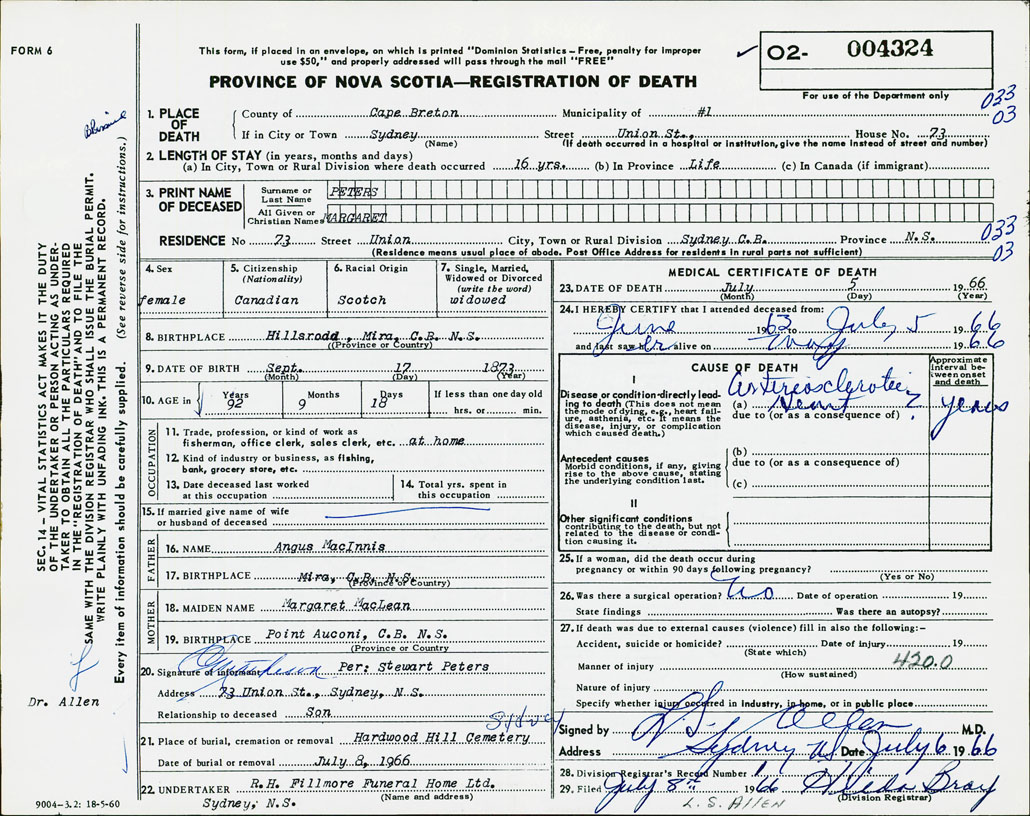 FORM 6
This form, if placed in an envelope, on which is printed "Dominion Statistics – Free, penalty for improper
use $50," and properly addressed will pass through the mail "FREE"
PROVINCE OF NOVA SCOTIA—REGISTRATION OF DEATH
O2- 004324
For use of the Department only
033
03
1. PLACE OF DEATH
County of Cape Breton Municipality of #1
If in City or Town Sydney Street Union St., House No. 73
(Name) (If death occurred in a hospital or institution, give the name instead of street and number)
2. LENGTH OF STAY (in years, months and days)
(a) In City, Town or Rural Division where death occurred 16 yrs. (b) In Province Life (c) In Canada (if immigrant)
3. PRINT NAME OF DECEASED
Surname or Last Name PETERS
All Given or Christian Names MARGARET
033
03
RESIDENCE No 73 Street Union City, Town or Rural Division Sydney C.B. Province N.S.
(Residence means usual place of abode. Post Office Address for residents in rural parts not sufficient)
4. Sex
female
5. Citizenship
(Nationality)
Canadian
6. Racial Origin
Scotch
7. Single, Married,
Widowed or Divorced
(write the word)
widowed
8. BIRTHPLACE Hillsrodd , Mira, C.B. N.S.
(Province or Country)
9. DATE OF BIRTH Sept. 17 1873
(Month) (Day) (Year)
10. AGE in Years 92 Months 9 Days 18 If less than one day old
hrs. or min.
OCCUPATION
11. Trade, profession, or kind of work as
fisherman, office clerk, sales clerk, etc. at home
12. Kind of industry or business, as fishing,
bank, grocery store, etc.
13. Date deceased last worked
at this occupation
14. Total yrs. spent in
this occupation
15. If married give name of wife
or husband of deceased
FATHER
16. NAME Angus MacInnis
17. BIRTHPLACE Mira, C.B. N.S.
(Province or Country)
MOTHER
18. MAIDEN NAME Margaret MacLean
19. BIRTHPLACE Point Auconi, C.B. N.S.
(Province or Country)
20. Signature of informant Per: Stewart Peters
Address 73 Union St., Sydney, N.S.
Relationship to deceased Son
Sydney
21. Place of burial, cremation or removal Hardwood Hill Cemetery
Date of burial or removal July 8, 1966
22. UNDERTAKER R.H. Fillmore Funeral Home Ltd.
(Name and address)
Sydney, N.S.
9004–3.2: 18-5-60
MEDICAL CERTIFICATE OF DEATH
23. DATE OF DEATH July 5 1966
(Month) (Day) (Year)
24. I HEREBY CERTIFY that I attended deceased from:
June 1963 to July 5 1966
and last saw her alive on May 1966
CAUSE OF DEATH
Approximate
interval be-
tween onset
and death
I
Disease or condition directly lead-
ing to death (This does not mean
the mode of dying, e.g., heart fail-
ure, asthenia, etc. It means the
disease, injury, or complication
which caused death.)
Arteriosclerotic
(a) Heart ? years
due to (or as a consequence of)
Antecedent causes
Morbid conditions, if any, giving
rise to the above cause, stating
the underlying condition last.
(b)
due to (or as a consequence of)
(c)
II
Other significant conditions
contributing to the death, but not
related to the disease or condi-
tion causing it.
25. If a woman, did the death occur during
pregnancy or within 90 days following pregnancy?
(Yes or No)
26. Was there a surgical operation? No Date of operation 19
State findings Was there an autopsy?
27. If death was due to external causes (violence) fill in also the following:–
Accident, suicide or homicide? Date of injury 19
(State which)
420.0
Manner of injury
(How sustained)
Nature of injury
Specify whether injury occurred in industry, in home, or in public place
Signed by L S Allen M.D.
Address Sydney NS Date July 6 1966
28. Division Registrar's Record Number
29. Filed July 8th 1966 Hilda Bray
(Division Registrar)
L. S. ALLEN
SEC. 14 – VITAL STATISTICS ACT MAKES IT THE DUTY
OF THE UNDERTAKER OR PERSON ACTING AS UNDER-
TAKER TO OBTAIN ALL THE PARTICULARS REQUIRED
IN THE "REGISTRATION OF DEATH" AND TO FILE THE
SAME WITH THE DIVISION REGISTRAR WHO SHALL ISSUE THE BURIAL PERMIT.
WRITE PLAINLY WITH UNFADING INK. THIS IS A PERMANENT RECORD.
Every item of information should be carefully supplied. (See reverse side for instructions.)
Dr. Allen